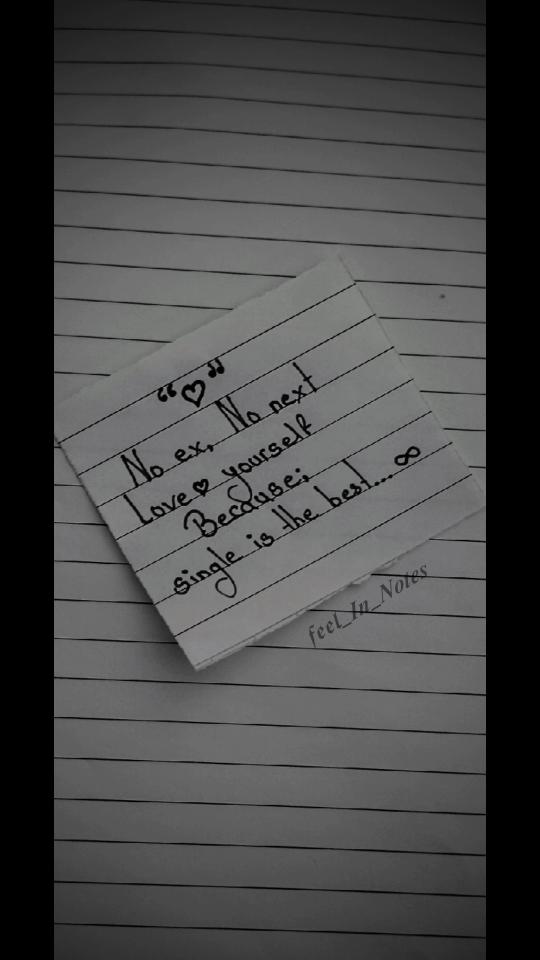 “♡”
No ex, No next
Love♡ yourself
Because;
single is the best... ∞
feel_In_Notes